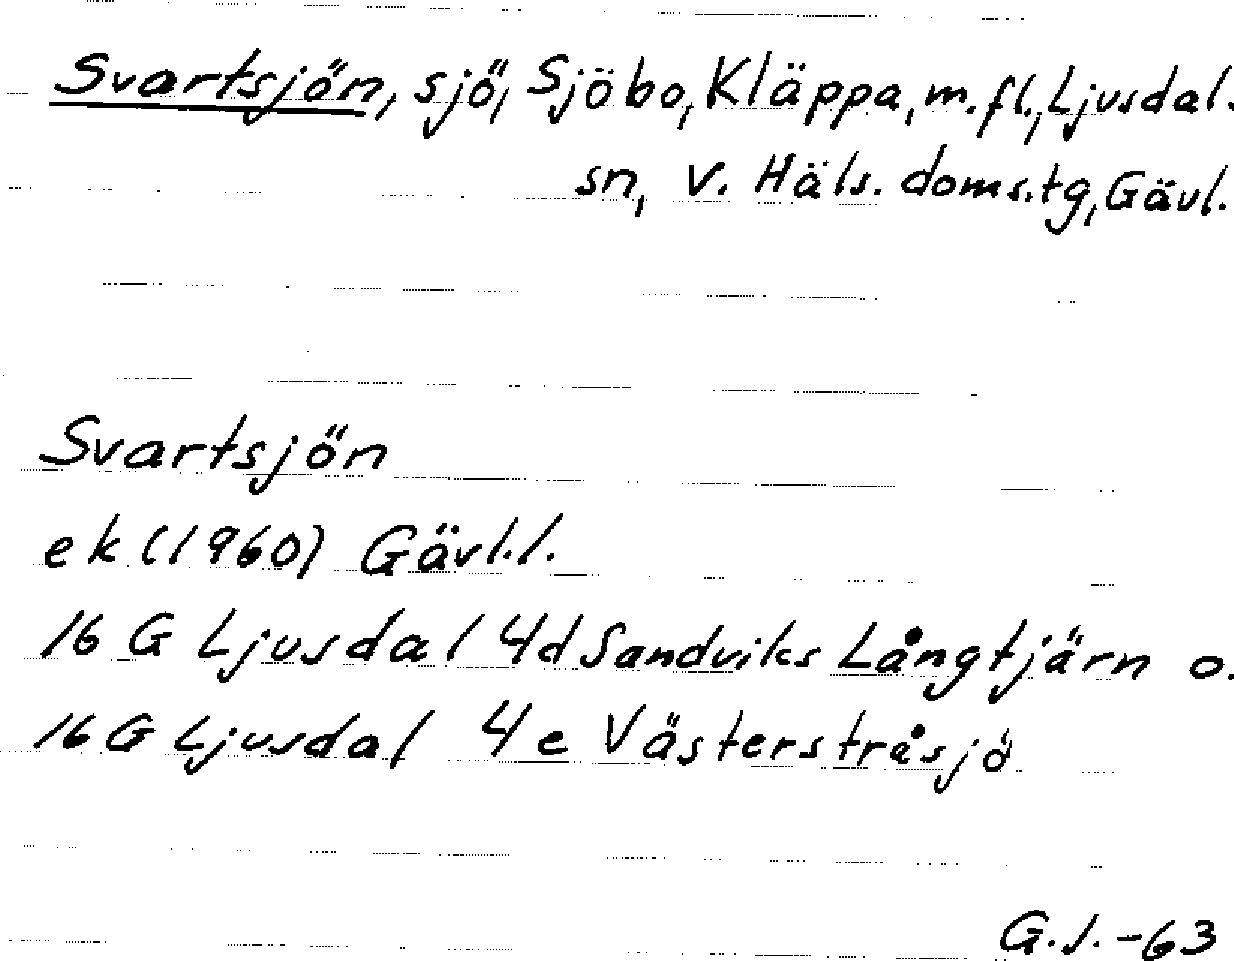 Svartsjön, sjö, Sjöbo, Kläppa, m.fl., Ljusdal.
sn, V. Häls. doms.tg, Gävl.
Svartsjön
ek (1960) Gävl.l.
16 G Ljusdal 4d Sandviks Långtjärn o.
16 G Ljusdal 4e Västerstråsjö
G.J.-63